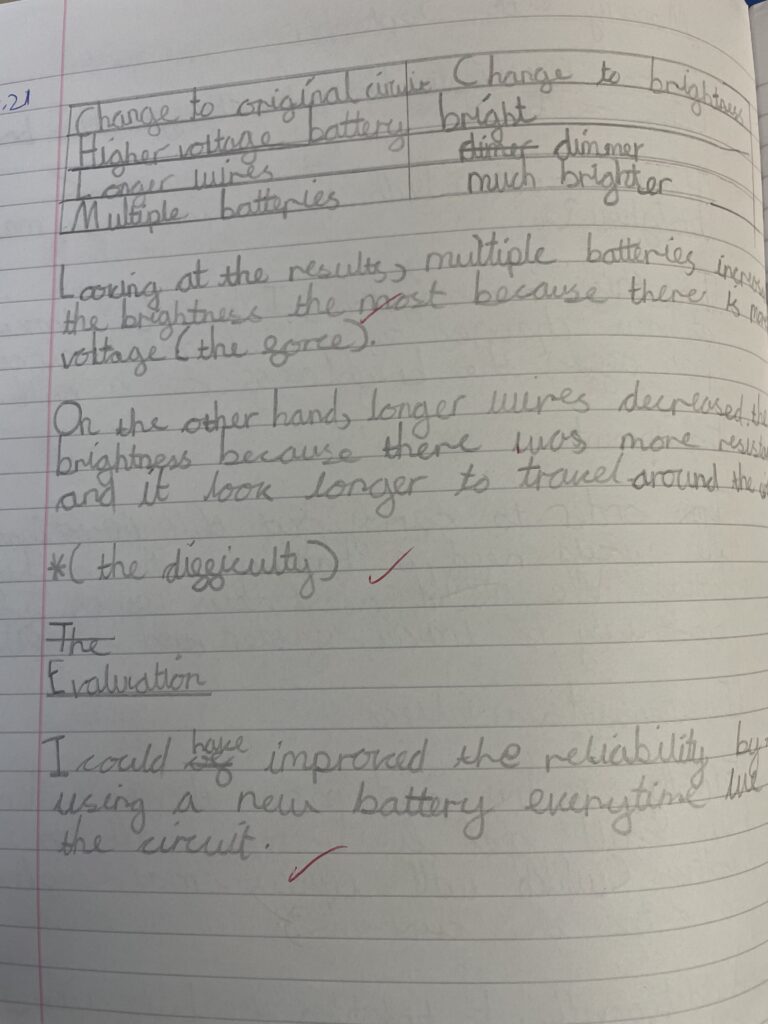 .21
Change to original circuit Change to brightness
Higher voltage battery bright
Longer wires dimmer
Multiple batteries much brighter
Looking at the results, multiple batteries increas
the brightness the most because there is mo
voltage (the force).
On the other hand, longer wires decreased the
brightness because there was more resist
and it took longer to travel around the
*(the difficulty)
The
Evaluation
I could have improved the reliability by
using a new battery everytime we
the circuit.